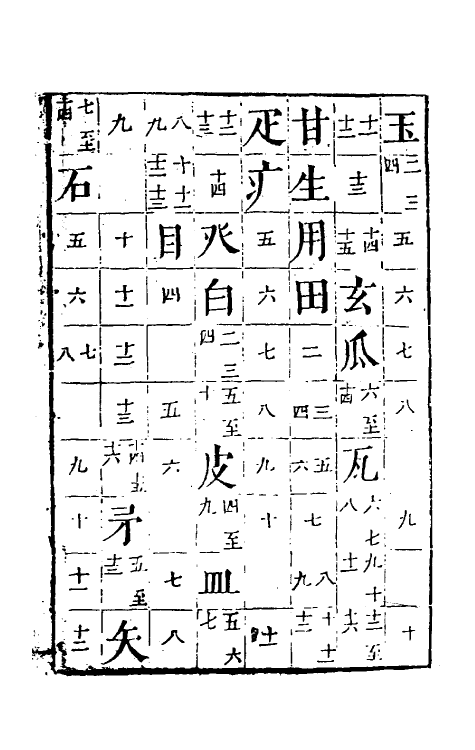 玉 二三四 五 六 七 八 九 十
十一十二 十三 十四十五 玄 瓜 六至十四 瓦 六七八 九十十一 十二至十六
甘 生 用 田 二 三四 五六 七 八九 十十一十二
疋 疒 五 六 七 八 九 十 十一
十二十三 十四 癶 白 二三四 五至十 皮 四至九 皿 五六七
八九 十十一十二十三 目 四 五 六 七 八
九 十 十一 十二 十三 十四至十六 矛 五至十三 矢
七至十四 石 五 六 七八 九 十 十一 十二